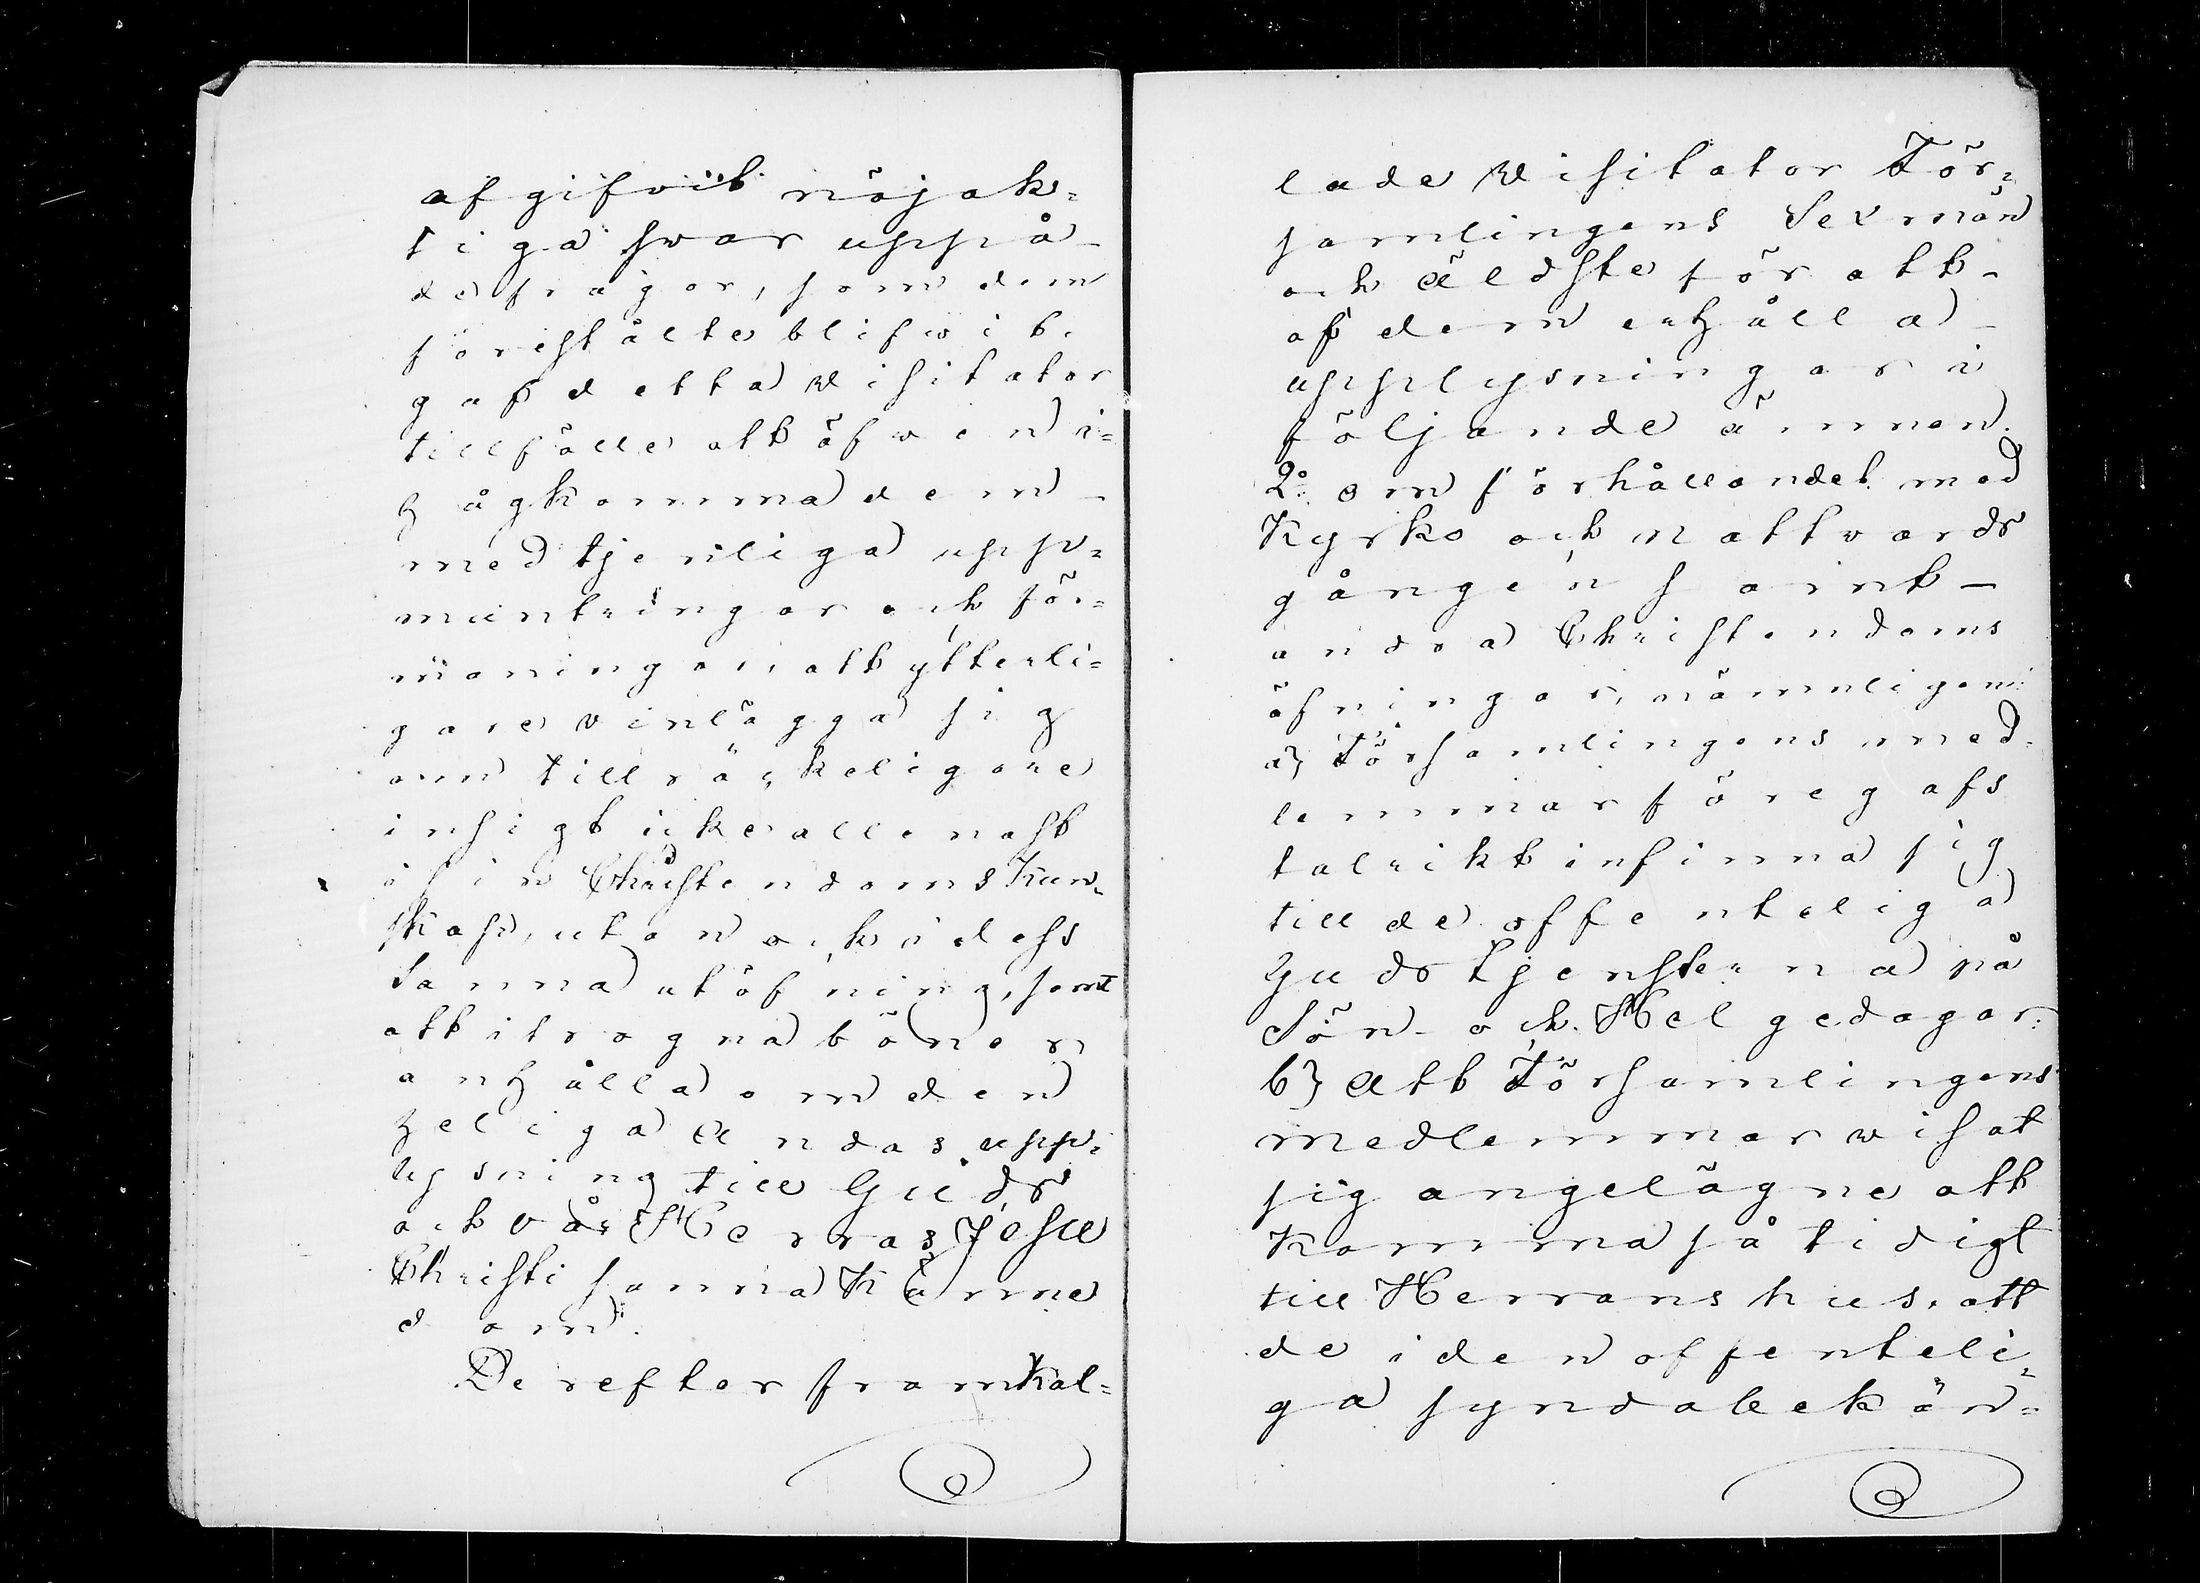 afgifvit nöjak=
tiga svar uppå
de frågor, som dem
förestälte blifwit,
gaf detta Visitator
tillfälle att äfwen i=
hågkomma dem
med tjenliga upp=
muntringar och för=
maningar, att ytterli=
gare vinlägga sig
om tillräckeligare
insigt icke allenast
i sin Christendoms Kun=
skap, utan ock i dess
sanna utöfning, samt
att i trogna böner
anhålla om den
heliga Andas upp=
lysning till Guds
och vår Herras Jesu
Christi sanna Känne
dom.
Derefter framkal=
lade Visitator För=
samlingens Sexmän
och Äldste för att
af dem erhålla
upplysningar i
följande ämnen.
2:o om förhållandet med
Kyrko och Nattvards
gången samt
andra Christendoms
öfningar, nämnligen:
a) Församlingens med=
lemmar föregafs
talrikt infinna sig
till de offenteliga
Gudstjensterna på
Sön- och Helgedagar:
b) Att Församlingens
medlemmar wisat
sig angelägne att
Komma så tidigt
till Herrans hus, att
de i den offenteli=
ga syndabekän=